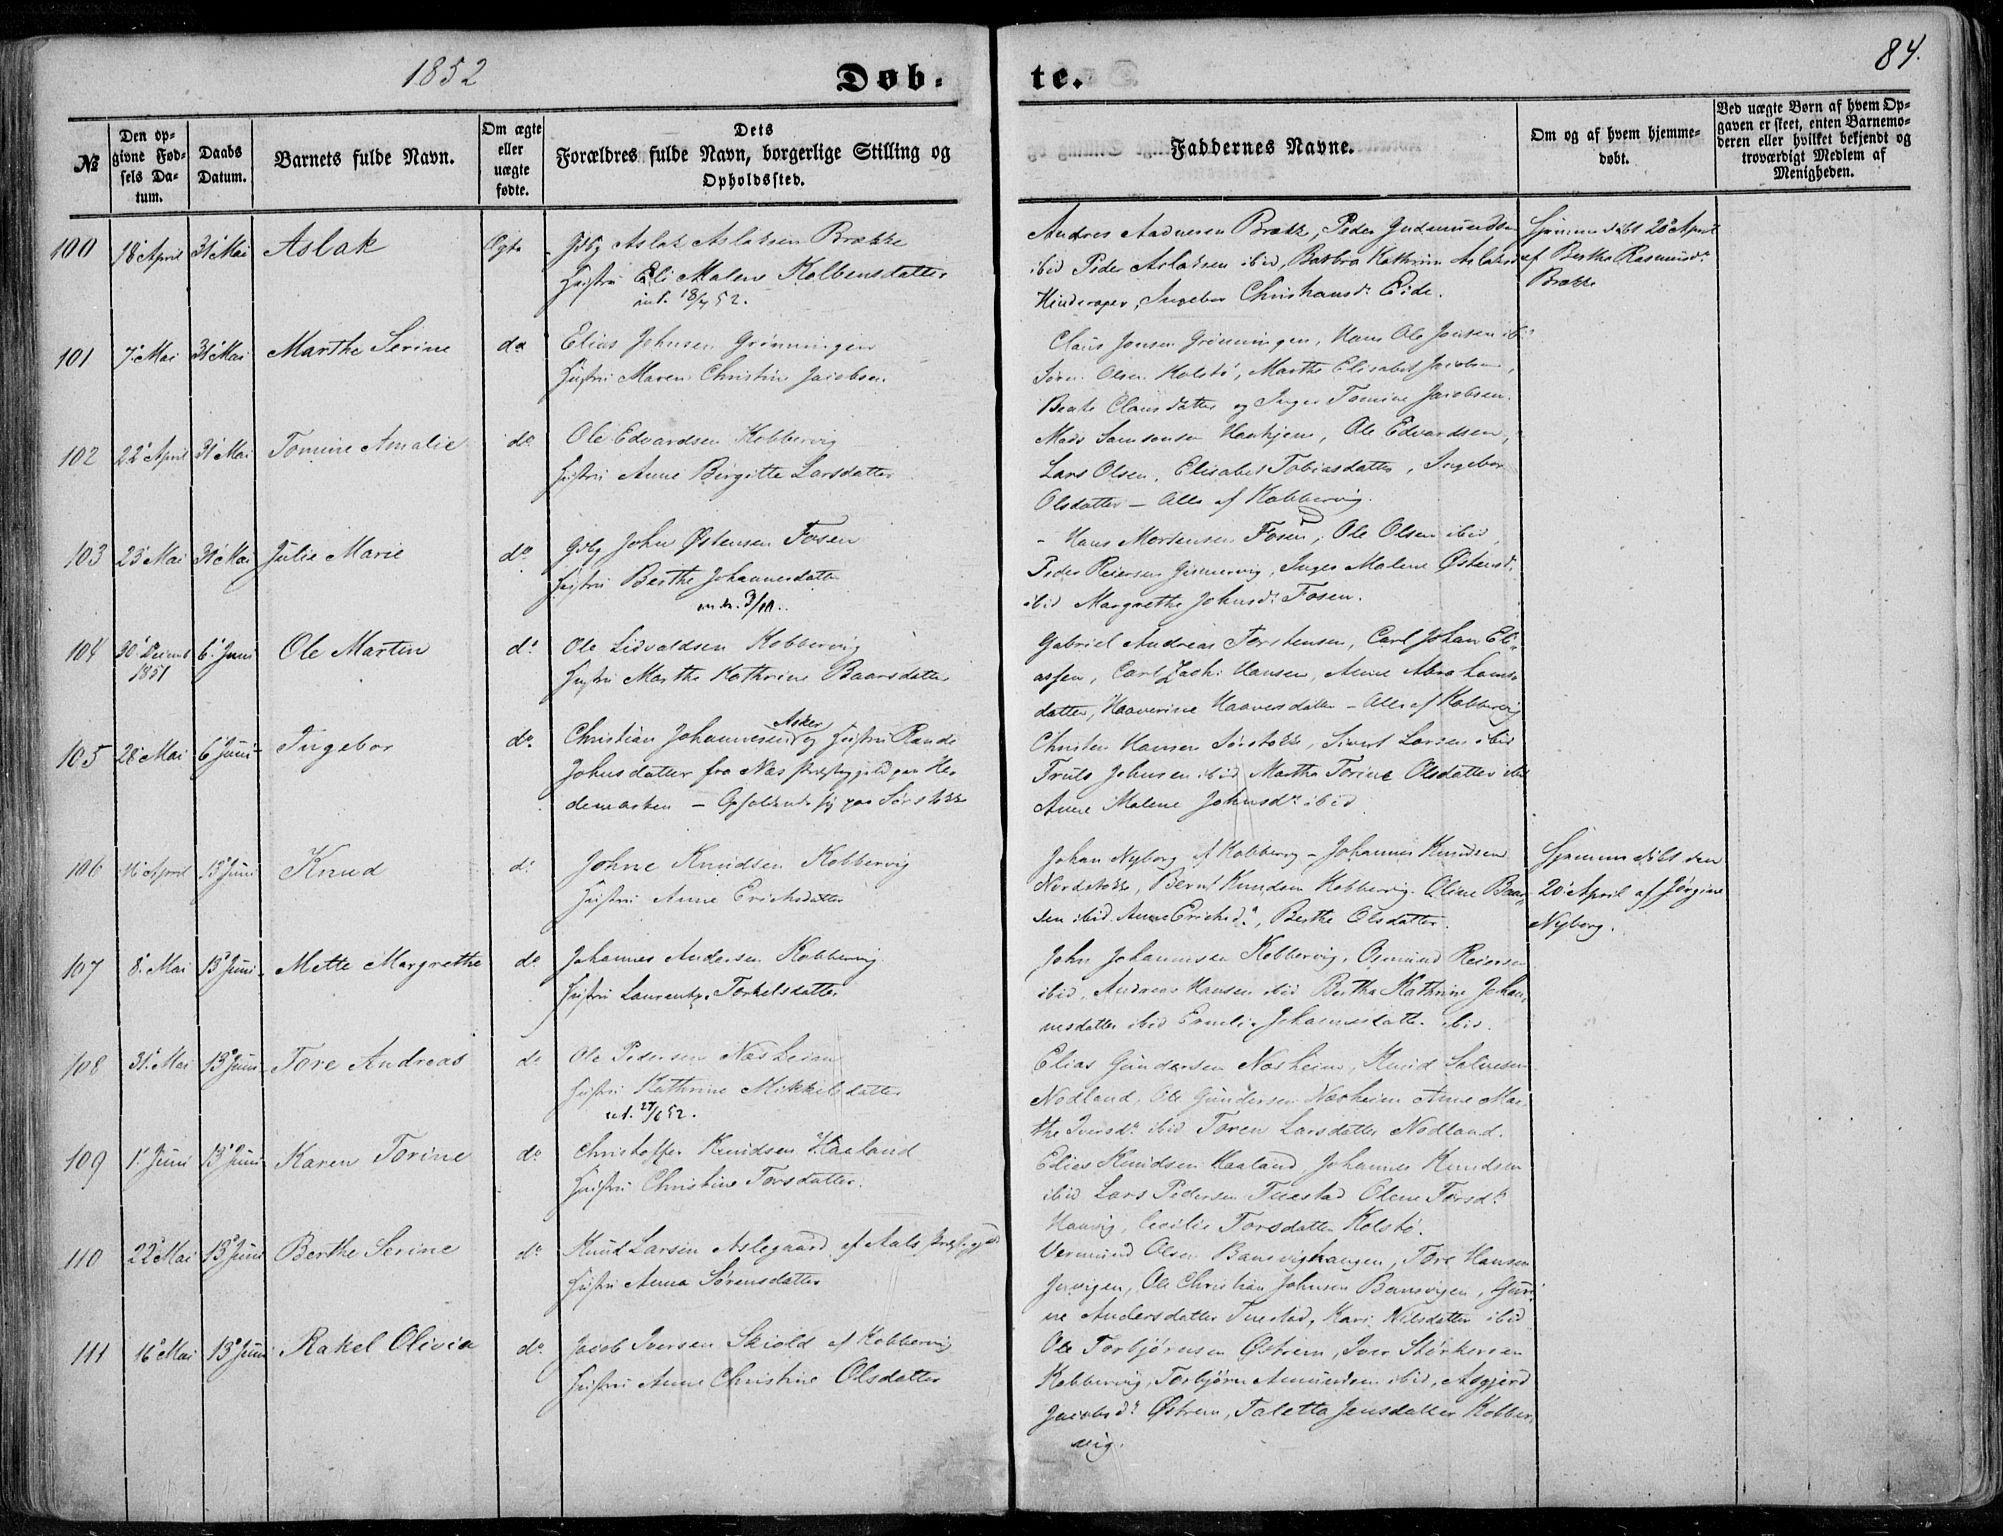 1852
Døb-
te.
84.
№
Den op-
givne Fød-
sels Da-
tum.
Daabs
Datum.
Barnets fulde Navn.
Om ægte
eller
uægte
fødte.
Dets
Forældres fulde Navn, borgerlige Stilling og
Opholdssted.
Faddernes Navne.
Om og af hvem hjemme-
døbt.
Ved uægte Børn af hvem Op-
gaven er skeet, enten Barnemo-
deren eller hvilket bekjendt og
troværdigt Medlem af
Menigheden.
100 18 April 31 Mai Aslak Ægte Aslak Aslaksen Brække
Hustru Eli Malene Kolbensdatter
18/4 52.
Andres Aadnesen Brække, Peder Gudmundsen
ibid Peder Aslaksen ibid, Barbra Kathrine Aslaksd
Hinderager, Ingebor Christiansdr Eide.
Hjemmedøbt 20 April
af Berthe Rasmusdr
Brække
101 7 Mai 31 Mai Marthe Serine do Elias Johnsen Grønningen
Hustru Maren Christine Jacobsen
Claus Jonsen Grønningen, Hans Ole Jonsen ib:
Søren Olsen Kolstø, Marthe Elisabet Jacobsen,
Beate Clausdatter og Inger Tomine Jacobsen.
102 22 April 31 Mai Tomine Amalie do Ole Edvardsen Kobbervig
Hustru Anne Birgitte Larsdatter
Mads Samsonsen, Ole Edvardsen,
Lars Olsen, Elisabet Tobiasdatter, Ingebor
Olsdatter — Alle af Kobbervig.
103 23 Mai 31 Mai Julie Marie do John Østensen Fosen
Hustru Berthe Johannesdatter
- Hans Mortensen Fosen, Ole Olsen ibid,
Peder Reiersen Gismervig, Inger Malene Østensdr
ibid Margrethe Johnsdr Fosen.
104 30 Decemb 1851 6 Juni Ole Martin do Ole Lidvaldsen Kobbervig
Hustru Marthe Kathrine Baarsdatter
Gabriel Andreas Torstensen, Carl Johan Eli-
assen, Carl Zach: Hansen, Anne Abrahams-
datter, Haaverine Haaversdatter — Alle af Kobbervig
105 28 Mai 6 Juni Ingebor do Christian Johannesen Asker og Hustru Randi
Johnsdatter fra Næs Præstegjeld paa He-
demarken — Opholdende sig paa Sørstokke
Christen Hansen Sørstokke, Sivert Larsen ibid
Truls Johnsen ibid Marthe Torine Olsdatter ibid
Anne Malene Johnsdr ibid
106 16 April 13 Juni Knud do Johne Knudsen Kobbervig
Hustru Anne Erichsdatter
Johan Nyborg af Kobbervig — Johannes Knudsen
Nordstokke, Bernt Knudsen Kobbervig. Oline
ibid. Anne Erichsdr, Berthe Olsdatter.
Hjemmedøbt den
20 April af Jørgine
Nyborg.
107 8 Mai 13 Juni Mette Margrethe do Johannes Andersen Kobbervig
Hustru Laurentze Torkelsdatter
John Johannesen Kobbervig, Osmund Reiersen
ibid, Andreas Hansen ibid Bertha Kathrine Johan-
nesdatter ibid Emelie Johannesdatter ibid.
108 31 Mai 13 Juni Tore Andreas do Ole Pedersen Næsheim
Hustru Kathrine Mikkelsdatter
27/6 52.
Elias Gundersen Næsheim, Knud Salvesen
Nodland, Ole Gundersen Næsheim Anne Mar-
the Iversdr ibid Toren Larsdatter Nodland.
109 1 Juni 13 Juni Karen Torine do Christoffer Knudsen Haaland
Hustru Christine Torsdatter.
Elias Knudsen Haaland, Johannes Knudsen
ibid Lars Pedersen Tuestad Olene Torsdr
Haavig, Cecilie Torsdatter Kolstø.
110 22 Mai 13 Juni Berthe Serine do Knud Larsen Aslegaard af Aals Præstegjeld
Hustru Anna Sørensdatter
Vermund Olsen Bansvighaugen, Tore Hansen
Ole Christian Johnsen Bansvigen, Guri-
ne Andersdatter Tuestad, Kari Nilsdatter ibid
111 16 Mai 13 Juni Rakel Olivia do Jacob Iversen Skiold af Kobbervig
Hustru Anne Christine Olsdatter
Ole Torbjørnsen Østrem, Iver Størkersen
Kobbervig, Torbjørn Amundsen ibid, Asgjerd
Jacobsdr Østrem, Taletta Jensdatter Kobber-
vig.